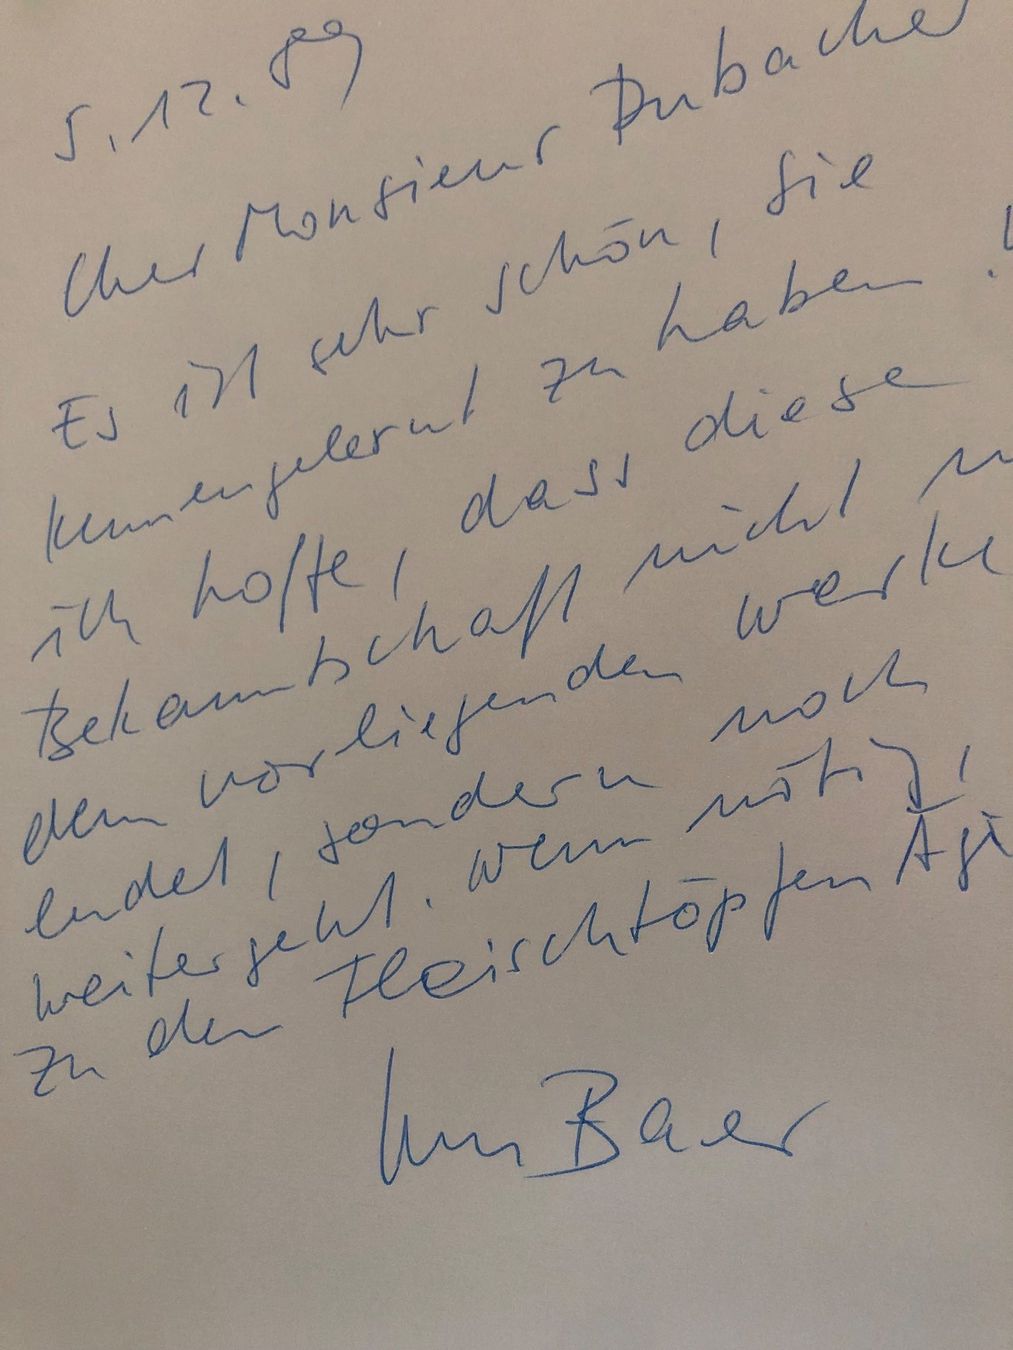 5.12.89
Cher Monsieur Dubacher
Es ist sehr schön, Sie
kennengelernt zu haben.
ich hoffe, dass diese
Bekanntschaft nicht
dem vorliegenden Werke
endet, sondern noch
weitergeht. Wenn nötig,
zu den Fleischtöpfen Ägi
Baer